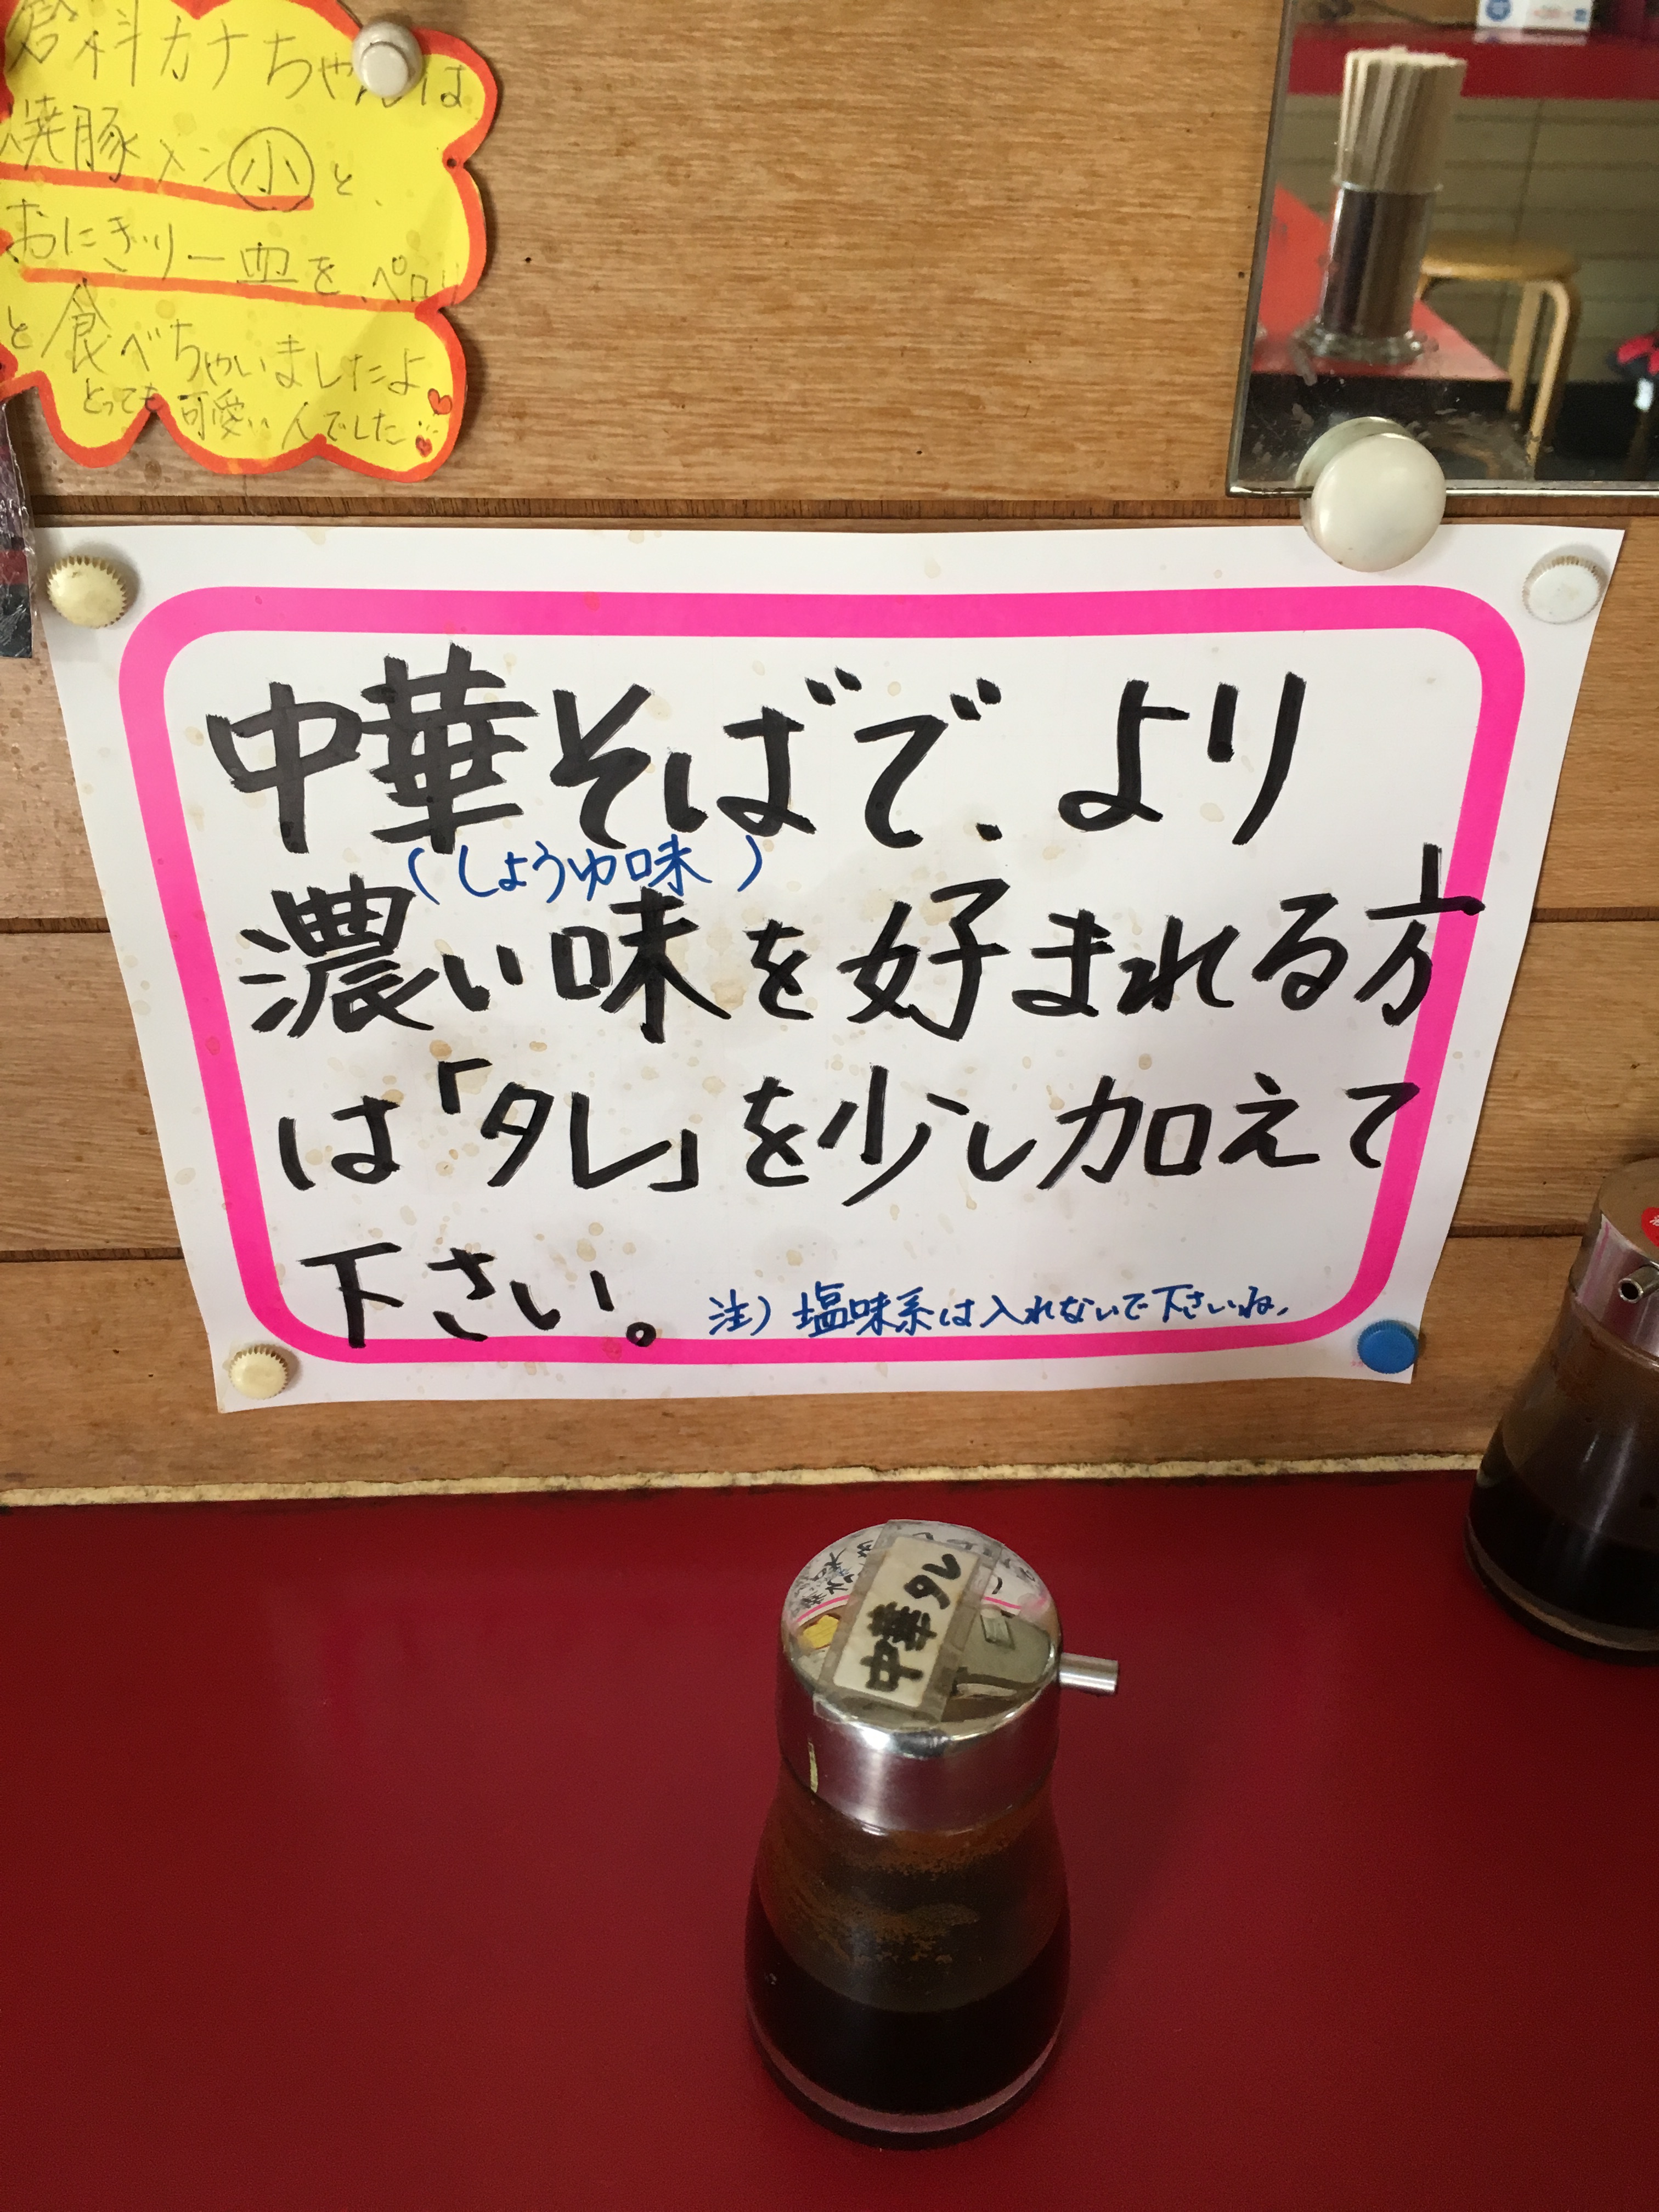 倉科カナちゃんは
焼豚メン小と、
おにぎり一皿を、ペロリ
と食べちゃいましたよ
とっても可愛い人でした
中華そばで、より
(しょうゆ味)
濃い味を好まれる方
は「タレ」を少し加えて
下さい。
注)塩味系は入れないで下さいね。
中華タレ